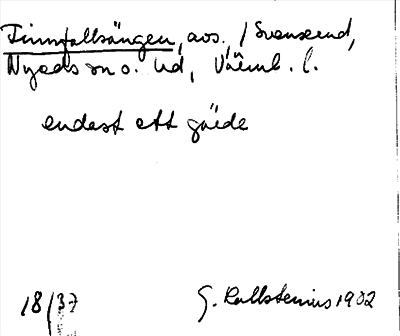 Finnfallsängen, avs. / Svenserud,
Nyeds sn o. hd, Värml. l.
endast ett gärde
18/37 G. Kallstenius 1902